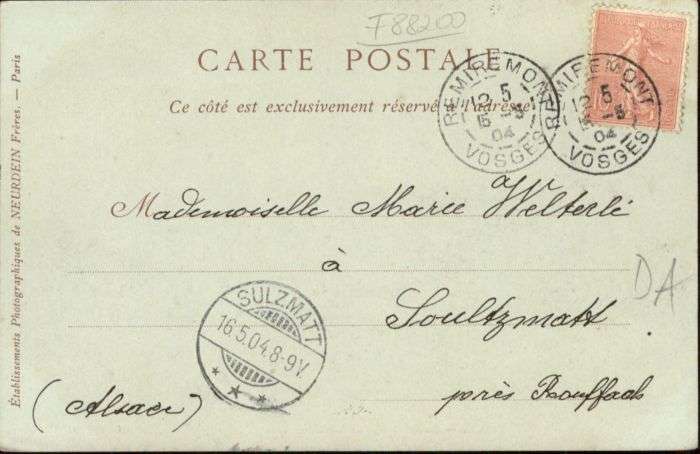 F88200
CARTE POSTALE
Ce côté est exclusivement réservé à l'adresse
REMIREMONT
5
VOSGES
04
REMIREMONT
5
04
VOSGES
Mademoiselle Marie Welterlé
à
Soultzmatt
près Rouffach
(Alsace)
SULZMATT
16.5.04.8-9V.
DA
Établissements Photographiques de NEURDEIN Frères. — Paris